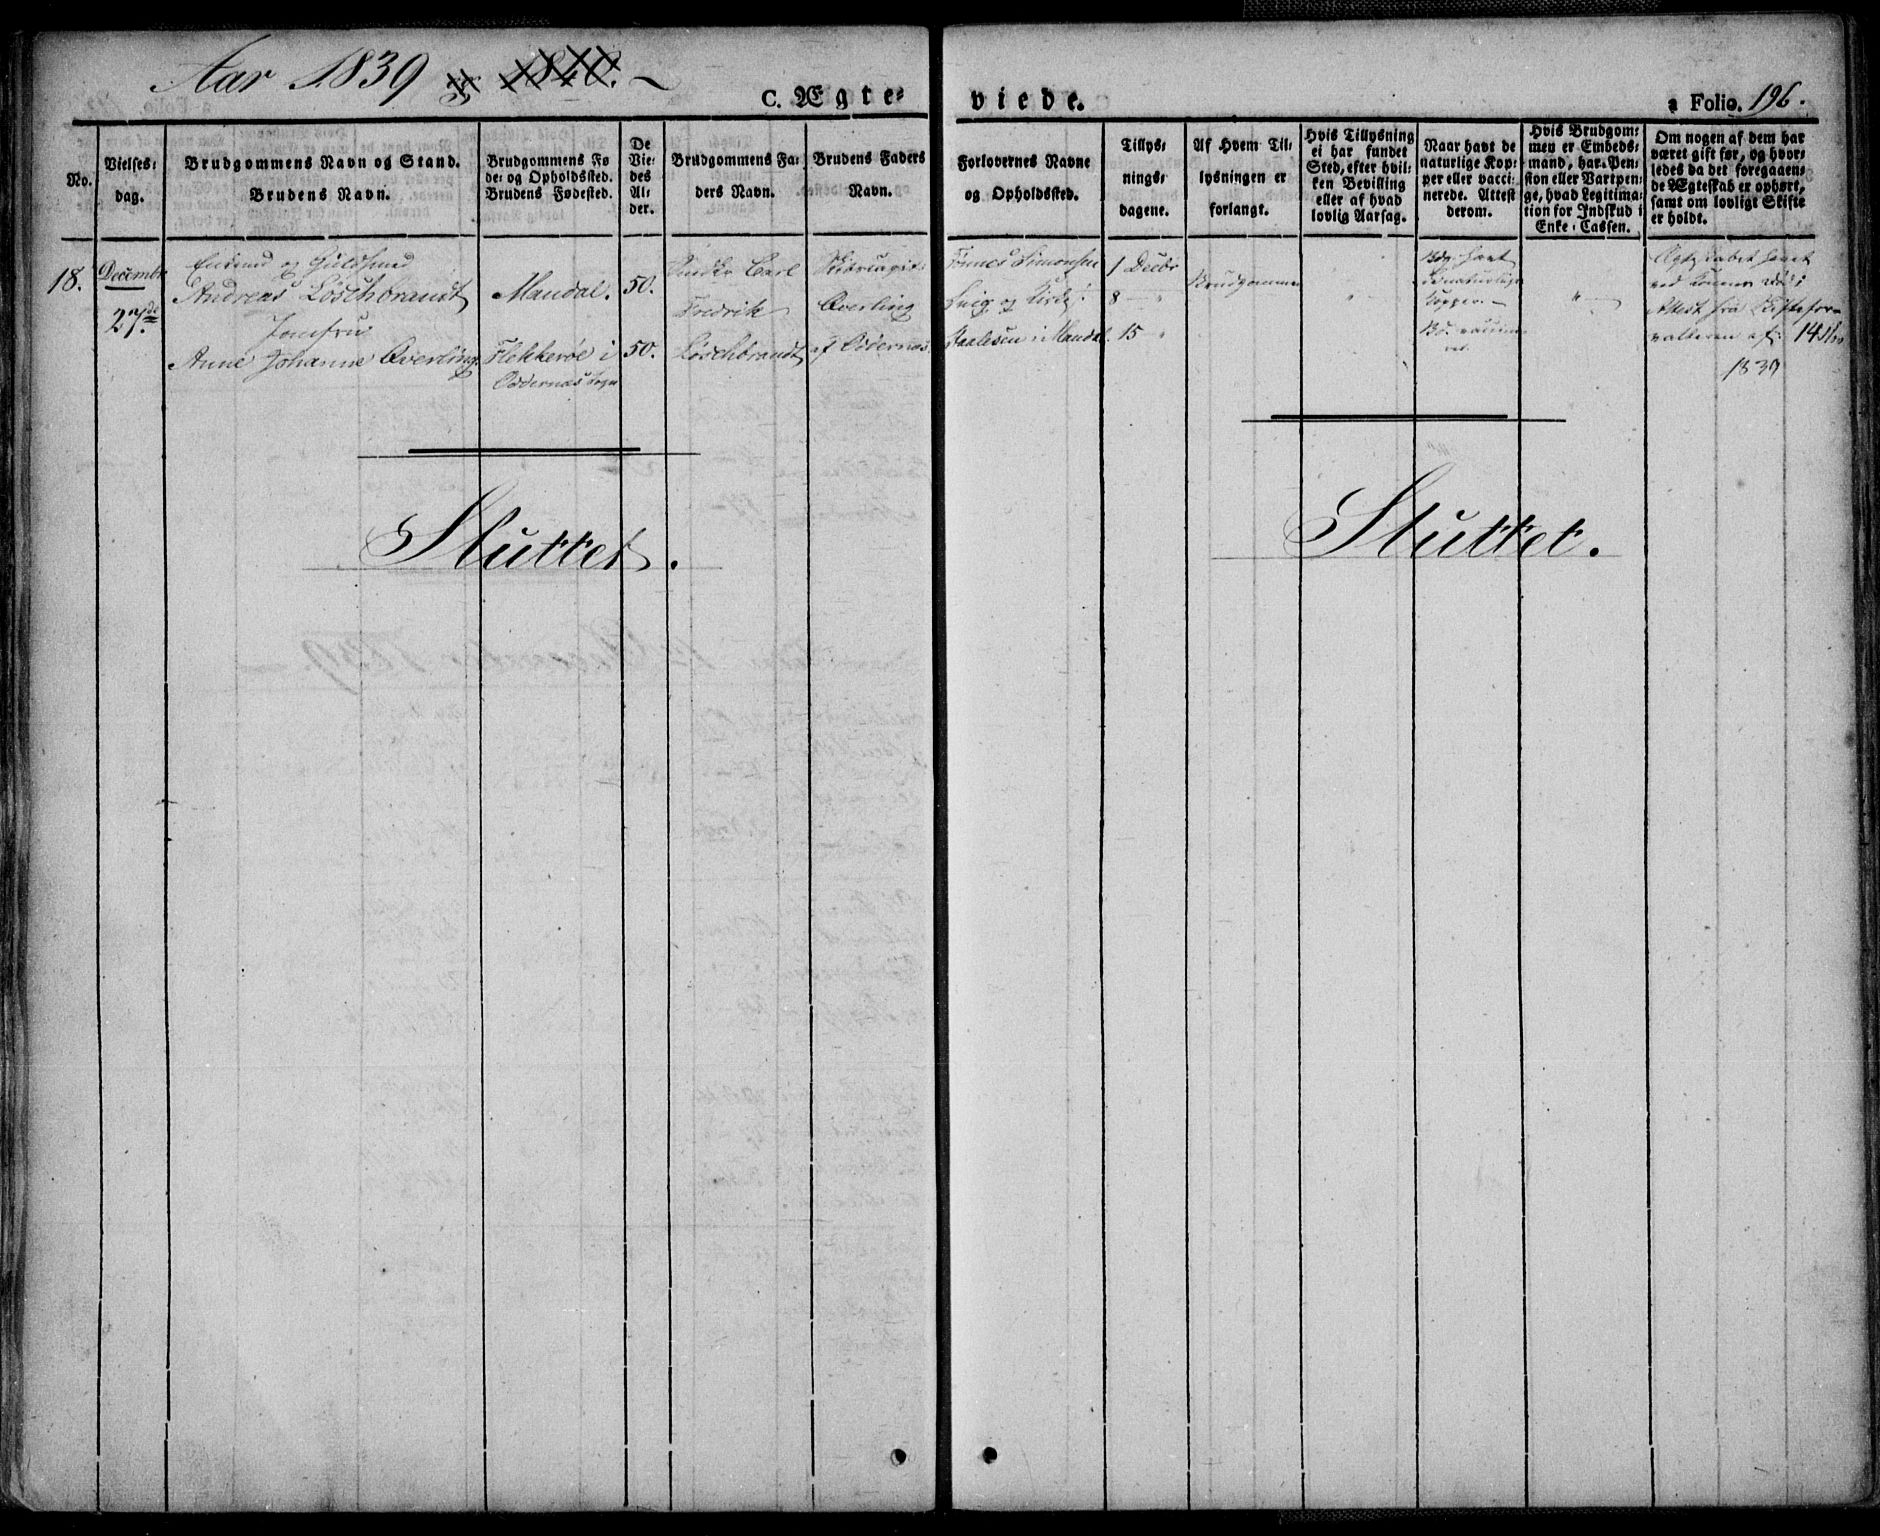 Aar 1839 1840.
C. Ægte-
viede.
a Folio. 196.
No.
Vielses-
dag.
Brudgommens Navn og Stand.
Brudens Navn.
Brudgommens Fø
de- og Opholdssted.
Brudens Fødested.
De
Vie-
des
Al-
der.
Brudgommens Fa-
ders Navn.
Brudens Faders
Navn.
Forlovernes Navne
og Opholdssted.
Tillys-
nings-
dagene.
Af Hvem Til-
lysningen er
forlangt.
Hvis Tillysning
ei har fundet
Sted, efter hvil-
ken Bevilling
eller af hvad
lovlig Aarsag.
Naar havt de
naturlige Kop-
per eller vacci-
nerede. Attest
derom.
Hvis Brudgom-
men er Embeds-
mand, har Pen-
sion eller Vartpen-
ge, hvad Legitima-
tion for Indskud i
Enke-Cassen.
Om nogen af dem har
været gift før, og hvor-
ledes da det foregaaen-
de Ægteskab er ophørt,
samt om lovligt Skifte
er holdt.
18.
Decembr
27de
og Guldsmed
Andreas Löschbrandt
Jomfru
Anne Johanne Överling
Mandal.
Flekkerøe i
Oddernæs Sogn
50.
50.
Carl
Fredrik
Löschbrandt
Överling
af Oddernæs
Tönnes Simonsen
Svig og
Paalesen i Mandal.
1 Decbr
8 — "
15 "
Brudgommen
" —
Bdg: havt
de naturlige
Kopper. —
Bd. vaccine-
ret.
" —
ved Konens Død;
Attest fra Skiftefor-
valteren af: 14
1839
Sluttet.
Sluttet.